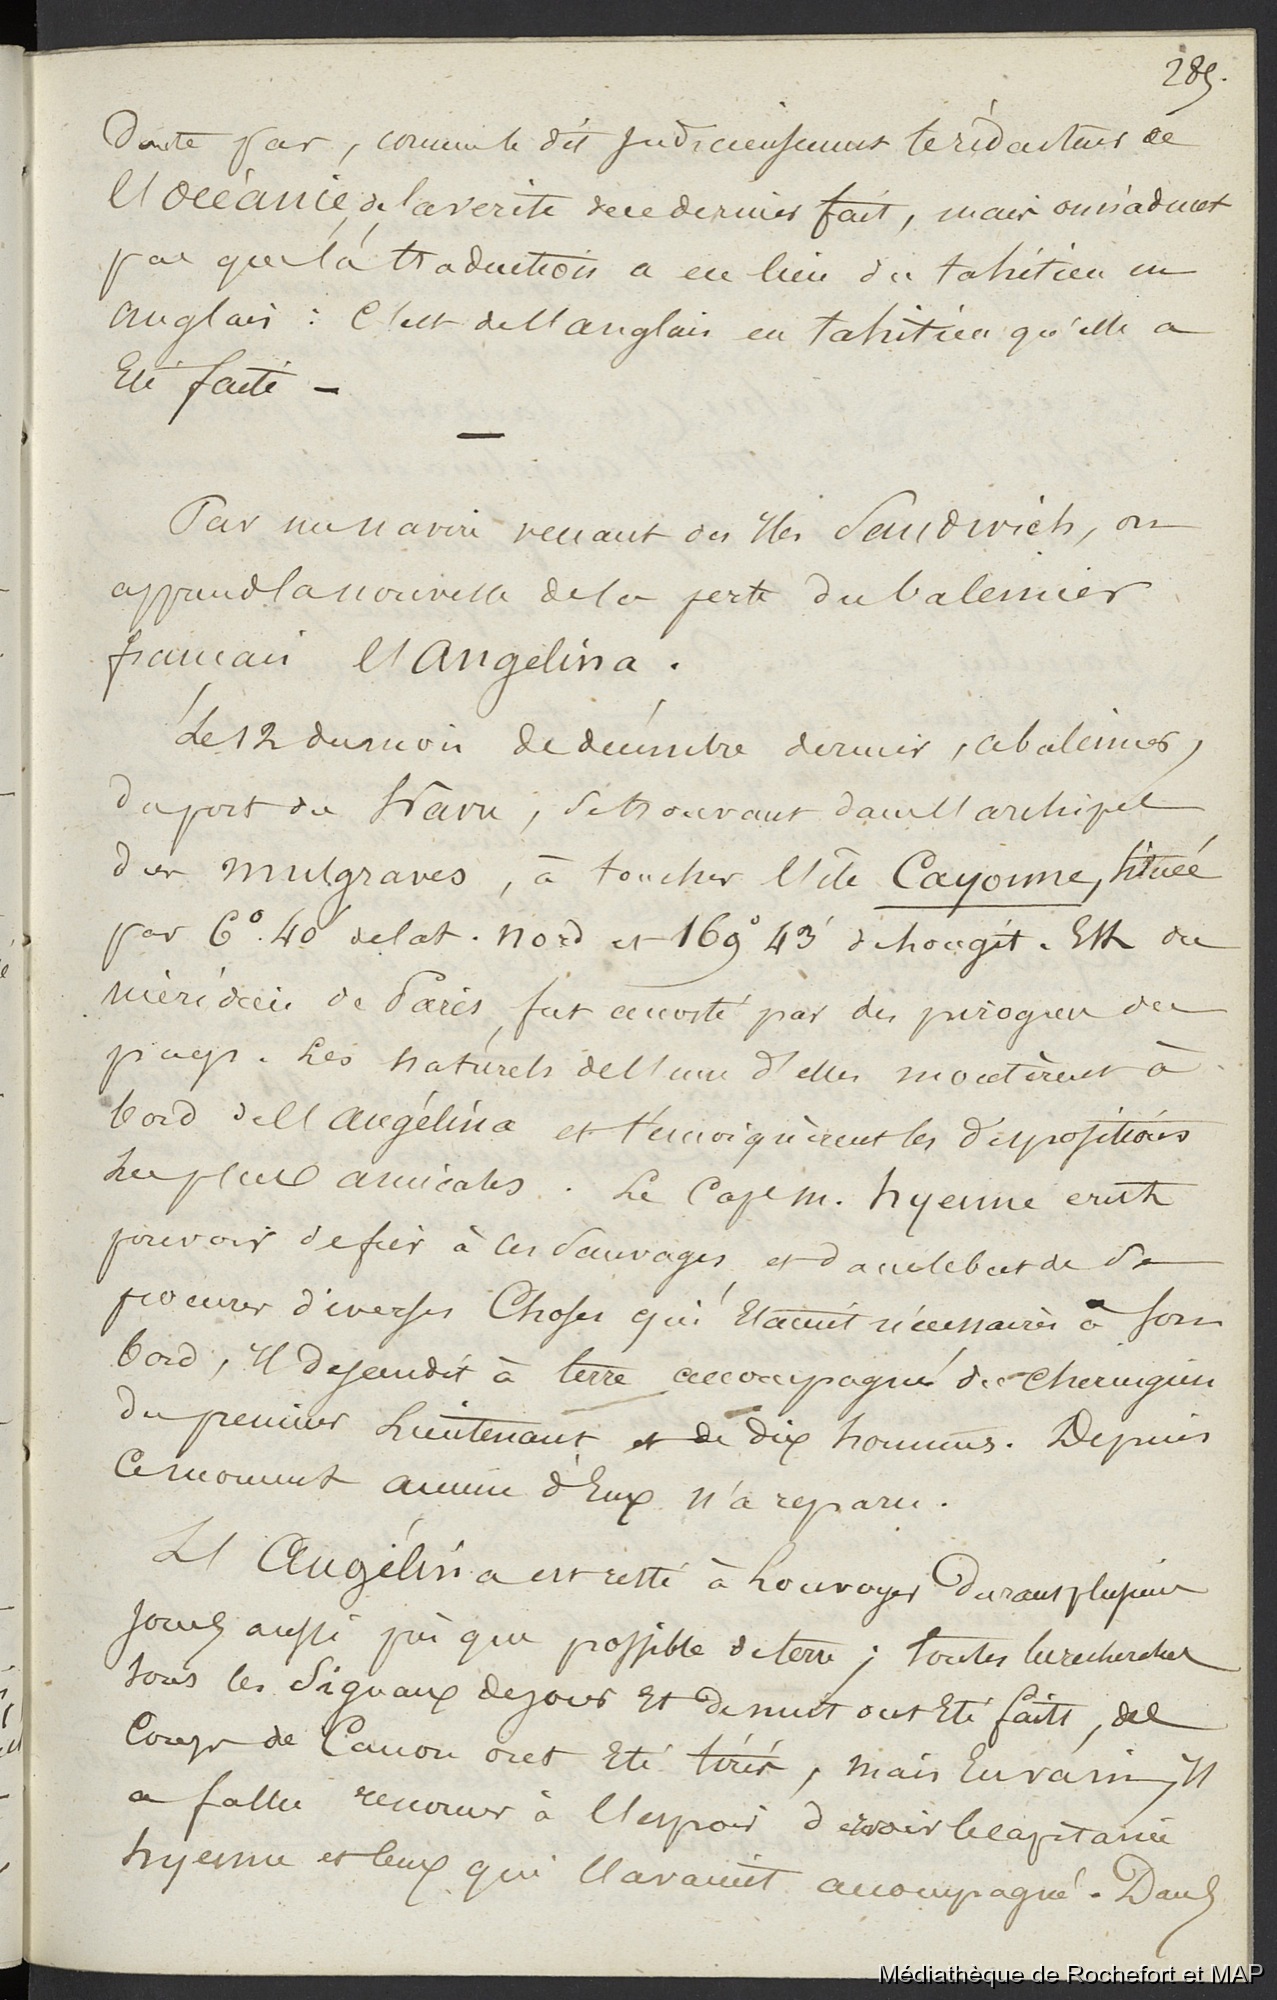 285.
Doute pas, comme le dit judicieusement le rédacteur de
l'océanie, de la verité de ce dernier fait, mais on n'admet
pas que la traduction a eu lieu du tahitien en
anglais : c'est de l'anglais en tahitien qu'elle a
Eté faite —
—
Par un navire venant des Iles Sandwich, on
apprend la nouvelle de la perte du baleinier
français l'Angelina.
Le 12 du mois de décembre dernier, ce baleinier,
du port du Havre, se trouvant dans l'archipel
des mulgraves, à toucher l'ile Cayonne, située
par 6°. 40' de lat. nord et 169° 43' de longit. Est du
méridien de Paris, fut accosté par des pirogues du
pays. Les naturels de l'une d'elles montèrent à
bord de l'Angélina et témoignèrent les dispositions
les plus amicales. Le Cape m. hyenne crut
pouvoir se fier à ces Sauvages, et dans le but de se
procurer diverses Choses qui étaient nécessaires à son
bord, Il descendit à terre accompagné du Chirurgien
du premier Lieutenant et de dix hommes. Depuis
ce moment aucun d'Eux n'a reparu.
L'Angélina est resté à louvoyer Durant plusieurs
jours aussi près que possible de terre; toutes les recherches
tous les Signaux de jour et de nuit ont Eté faits, des
Coups de Canon ont Eté tirés, mais En vain, Il
a fallu renoncer à l'espoir de revoir le capitaine
hyenne et ceux qui l'avaient accompagné. Dans
Médiathèque de Rochefort et MAP